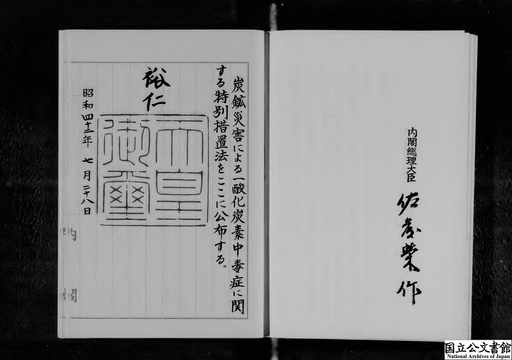 炭鉱災害による一酸化炭素中毒症に関
する特別措置法をここに公布する。
裕仁
天皇
御璽
昭和四十二年七月二十八日
内閣総理大臣 佐藤榮作
国立公文書館
National Archives of Japan